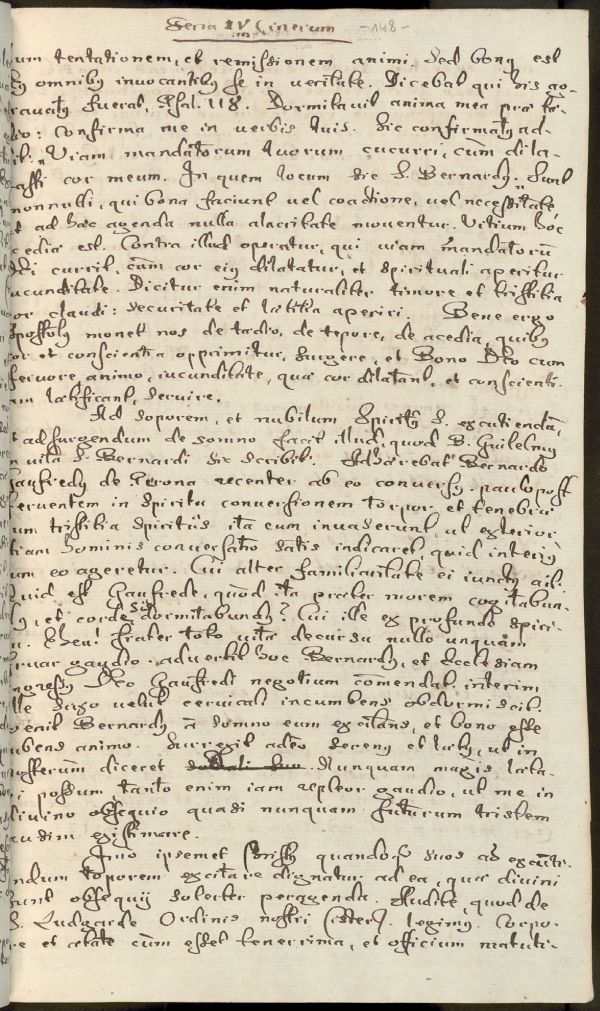 Feria IV Cinerum -148-
um tentationem, et remissionem animi. Sed bonq est
omnibq invocantibq se in veritate. Dicebat qui his ag-
fuerat, Psal. 118. Dormitavit anima mea præ tæ-
dio: Confirma me in verbis tuis. Sic confirmatq ad-
Viam mandatorum tuorum cucurri, cum dila-
asti cor meum. In quem locum sic S. Bernardq. Sunt
nonnulli, qui bona faciunt vel coactione, vel necessitate,
ad hæc agenda nulla alacritate moventur. Vitium hoc
cedia est. Contra illud operatur, qui viam mandatorū
Dei currit, cùm cor eiq dilatatur, et spirituali aperitur
ucunditate. Dicitur enim naturaliter timore et tristitia
or claudi: securitate et lætitia aperiri. Bene ergo
postolq monet nos de tædio, de tepore, de acedia, quibq
or et conscientia opprimitur, surgere, et Bono Deo cum
fervore, animo, iucunditate, quæ cor dilatant, et conscienti-
am lætificant, servire.
Ad soporem, et nubilum Spiritq S. excutiendā,
t adsurgendum de somno facit illud, quod B. Guilelmq
n vita S. Bernardi sic scribit. Adhærebat Bernardo
aufredq de Perona recenter ab eo conversq. paulo post
ferventem in Spiritu conversionem torpor et tenebræ
um tristitia spiritûs ita eum invaserunt, ut exterior
tiam hominis conversatio satis indicaret, quid interiq
um eo ageretur. Cui alter familiaritate ei iunctq ait:
Quid est Gaufrede, quòd ita præter morem cogitabun-
q, et corde sic dormitabundq? Cui ille ex profundo spiri-
Eheu! frater toto vitæ decursu nullo unquam
ruar gaudio. advertit hoc Bernardq, et Ecclesiam
ngressq Deo Gaufredi negotium comendat. interim
lle saxo velut cervicali incumbens obdormiscit.
venit Bernardq à somno eum excitans, et bono esse
ubens animo. Surrexit adeo serenq et lætq, ut in
posterum diceret Nunquam magis læta-
ri possum tanto enim iam repleor gaudio, ut me in
divino obsequio quasi nunquam futurum tristem
ausim existimare.
Imo ipsemet Christq quandoq suos ad excuti-
ndum toporem excitare dignatur ad ea, quæ divini
sunt obsequij solerter peragenda. Audite, quod de
S. Ludgarde Ordinis nostri Cister. legimq. Corpo-
re et ætate cùm esset tenerrima, et officium matuti-